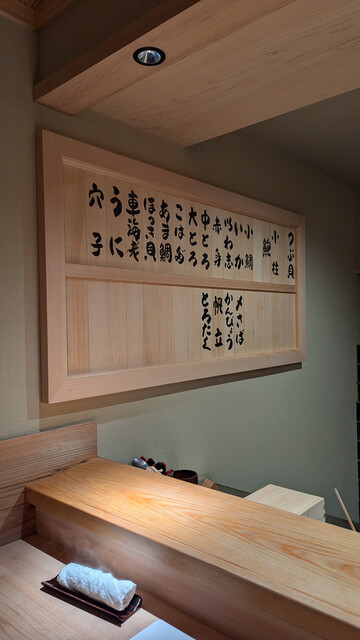 つぶ貝
小柱
鮑
小鯛
いか
いわ志
赤身
中とろ
大とろ
こはだ
あま鯛
ほっき貝
車海老
うに
穴子
〆さば
かんぴょう
帆立
とろたく